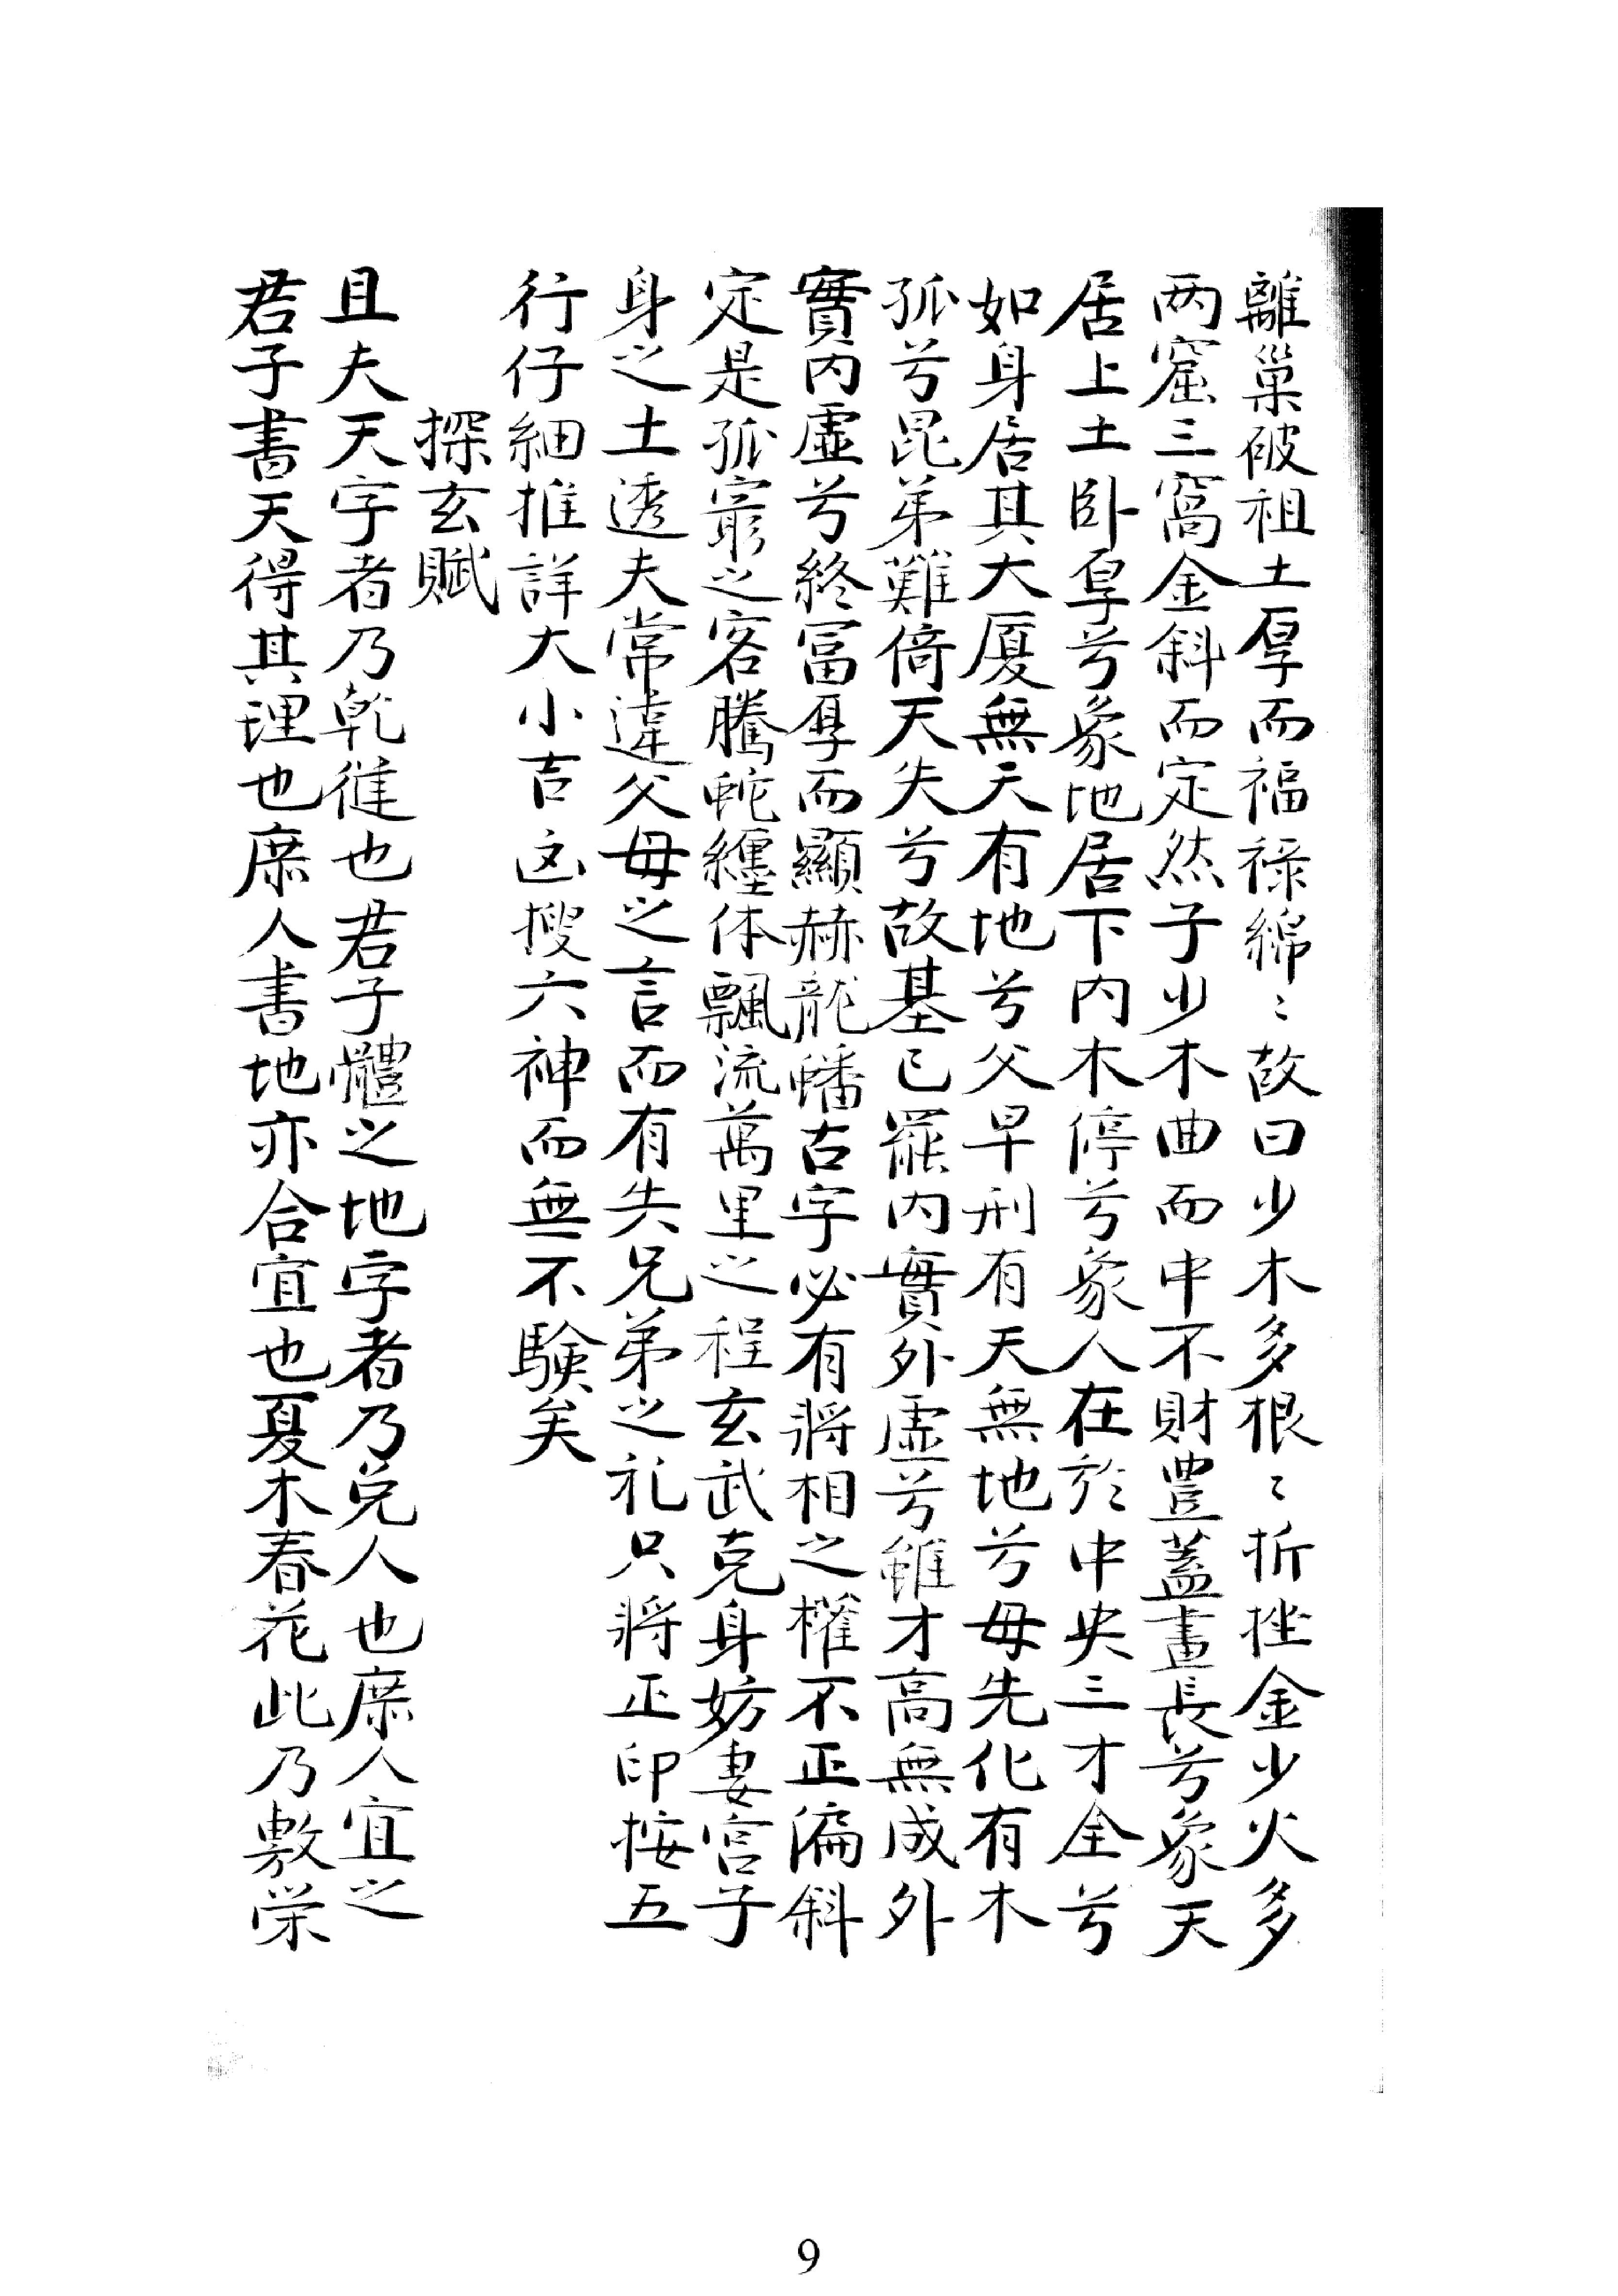 離巢破祖土厚而福祿綿〻故曰少木多根〻折挫金少火多
两窟三窩金斜而定然子少木曲而中不財豊蓋畫長兮象天
居上土卧厚兮象地居下内木停兮象人在於中央三才全兮
如身居其大厦無天有地兮父早刑有天無地兮母先化有木
孤兮昆弟難倚天失兮故基已罷内實外虛兮雖才高無成外
實内虛兮終冨厚而顯赫龍蟠古字必有將相之權不正偏斜
定是孤窮之客騰蛇纏体飄流萬里之程玄武克身妨妻宫子
身之土透夫常違父母之言而有失兄弟之礼只將正印按五
行仔細推詳大小吉凶搜六神而無不驗矣
探玄賦
且夫天字者乃乾健也君子體之地字者乃兌人也庶人宜之
君子書天得其理也庶人書地亦合宜也夏木春花此乃敷荣
9